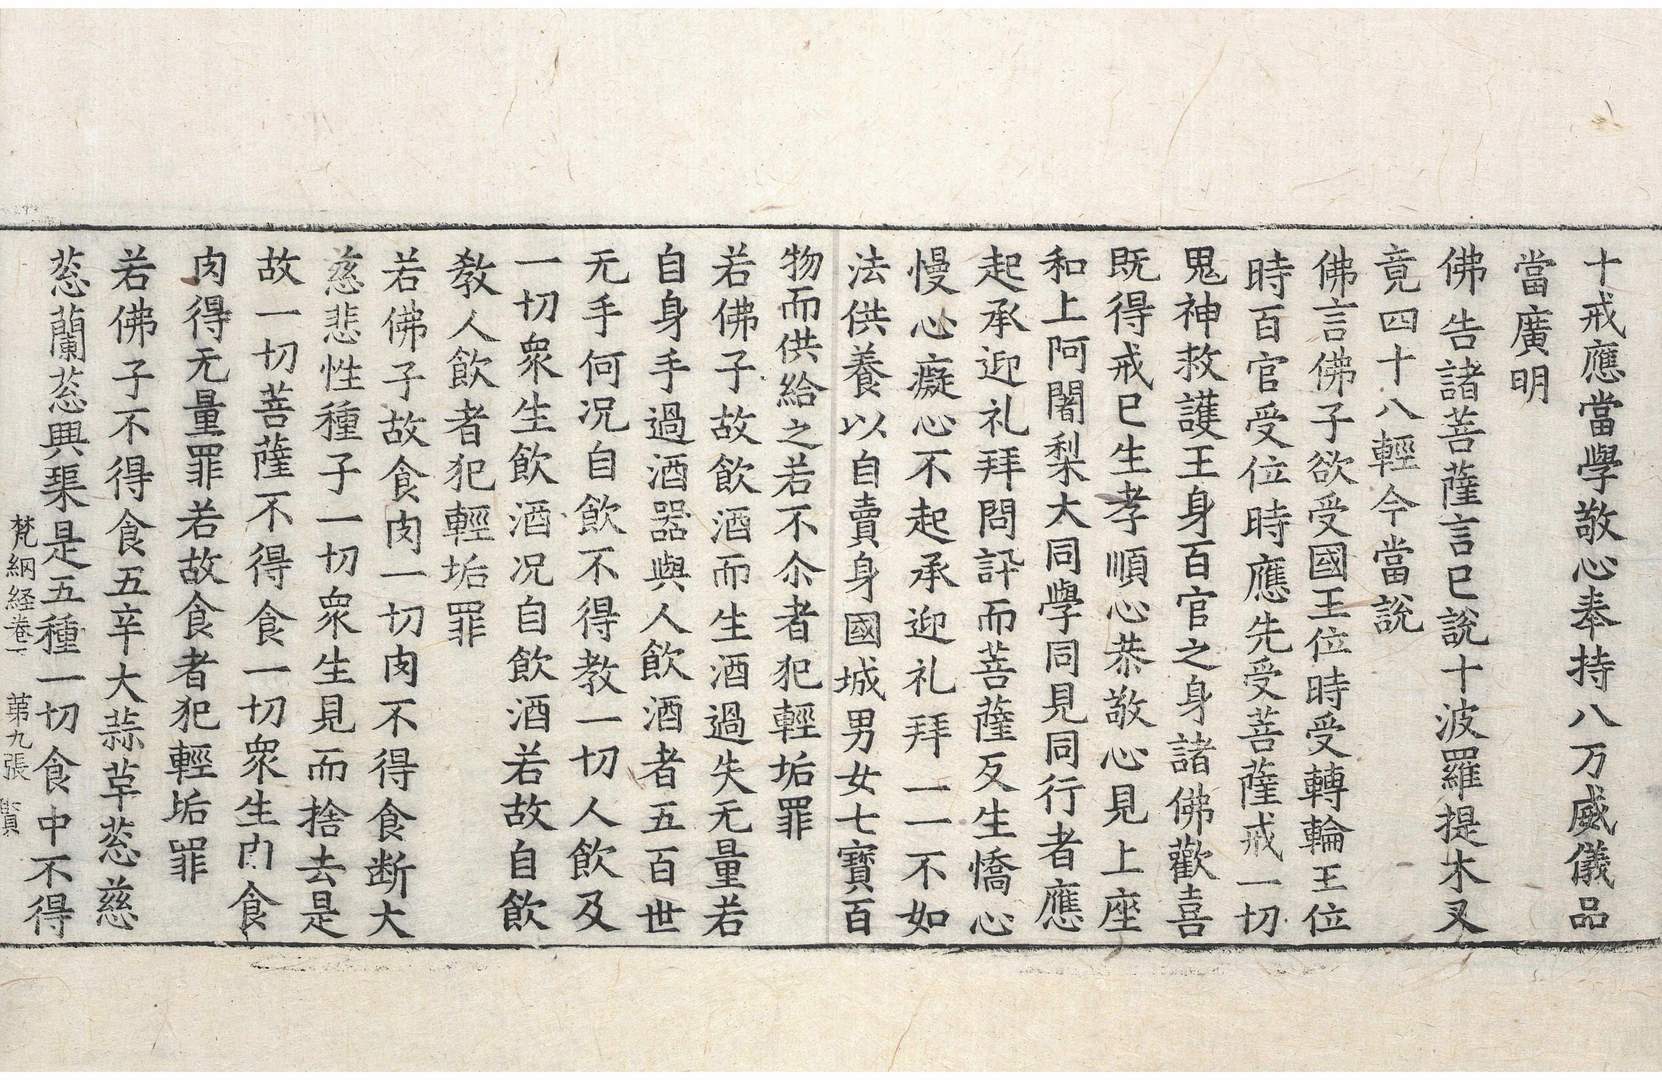 十戒應當學敬心奉持八万威儀品
當廣明
佛告諸菩薩言已說十波羅提木叉
竟四十八輕今當說
佛言佛子欲受國王位時受轉輪王位
時百官受位時應先受菩薩戒一切
鬼神救護王身百官之身諸佛歡喜
既得戒已生孝順心恭敬心見上座
和上阿闍梨大同學同見同行者應
起承迎礼拜問訊而菩薩反生憍心
慢心癡心不起承迎礼拜一一不如
法供養以自賣身國城男女七寶百
物而供給之若不尒者犯輕垢罪
若佛子故飲酒而生酒過失无量若
自身手過酒器與人飲酒者五百世
无手何況自飲不得教一切人飲及
一切眾生飲酒况自飲酒若故自飲
教人飲者犯輕垢罪
若佛子故食肉一切肉不得食断大
慈悲性種子一切眾生見而捨去是
故一切菩薩不得食一切眾生肉食
肉得无量罪若故食者犯輕垢罪
若佛子不得食五辛大蒜草䓗慈
䓗蘭䓗興蕖是五種一切食中不得
梵網経卷下 第九張